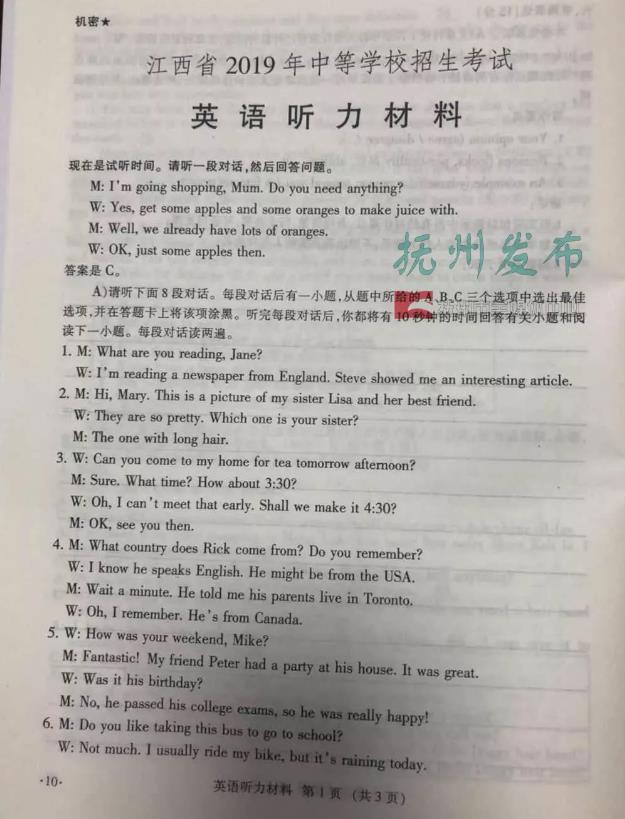 机密★
江西省 2019 年中等学校招生考试
英语听力材料
现在是试听时间。请听一段对话,然后回答问题。
M: I'm going shopping, Mum. Do you need anything?
W: Yes, get some apples and some oranges to make juice with.
M: Well, we already have lots of oranges.
W: OK, just some apples then.
抚州发布
答案是 C。
A)请听下面 8 段对话。每段对话后有一小题,从题中所给的 A、B、C 三个选项中选出最佳
选项,并在答题卡上将该项涂黑。听完每段对话后,你都将有 10 秒钟的时间回答有关小题和阅
读下一小题。每段对话读两遍。
1. M: What are you reading, Jane?
W: I'm reading a newspaper from England. Steve showed me an interesting article.
2. M: Hi, Mary. This is a picture of my sister Lisa and her best friend.
W: They are so pretty. Which one is your sister?
M: The one with long hair.
3. W: Can you come to my home for tea tomorrow afternoon?
M: Sure. What time? How about 3:30?
W: Oh, I can't meet that early. Shall we make it 4:30?
M: OK, see you then.
4. M: What country does Rick come from? Do you remember?
W: I know he speaks English. He might be from the USA.
M: Wait a minute. He told me his parents live in Toronto.
W: Oh, I remember. He's from Canada.
5. W: How was your weekend, Mike?
M: Fantastic! My friend Peter had a party at his house. It was great.
W: Was it his birthday?
M: No, he passed his college exams, so he was really happy!
6. M: Do you like taking this bus to go to school?
W: Not much. I usually ride my bike, but it's raining today.
·10·
英语听力材料 第 1 页 (共 3 页)